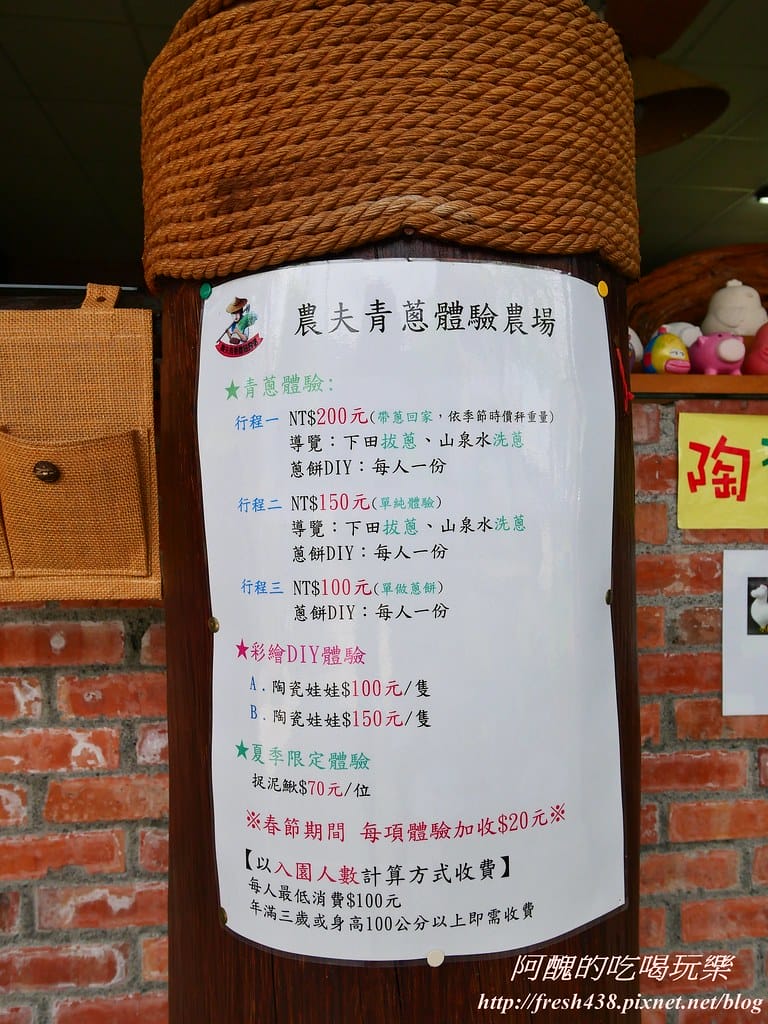 農夫青蔥體驗農場
★青蔥體驗:
行程一 NT$200元(帶蔥回家，依季節時價秤重量)
導覽：下田拔蔥、山泉水洗蔥
蔥餅DIY：每人一份
行程二 NT$150元(單純體驗)
導覽：下田拔蔥、山泉水洗蔥
蔥餅DIY：每人一份
行程三 NT$100元(單做蔥餅)
蔥餅DIY：每人一份
★彩繪DIY體驗
A.陶瓷娃娃$100元/隻
B.陶瓷娃娃$150元/隻
★夏季限定體驗
捉泥鰍$70元/位
※春節期間 每項體驗加收$20元※
【以入園人數計算方式收費】
每人最低消費$100元
年滿三歲或身高100公分以上即需收費
陶
阿醜的吃喝玩樂
http://fresh438.pixnet.net/blog